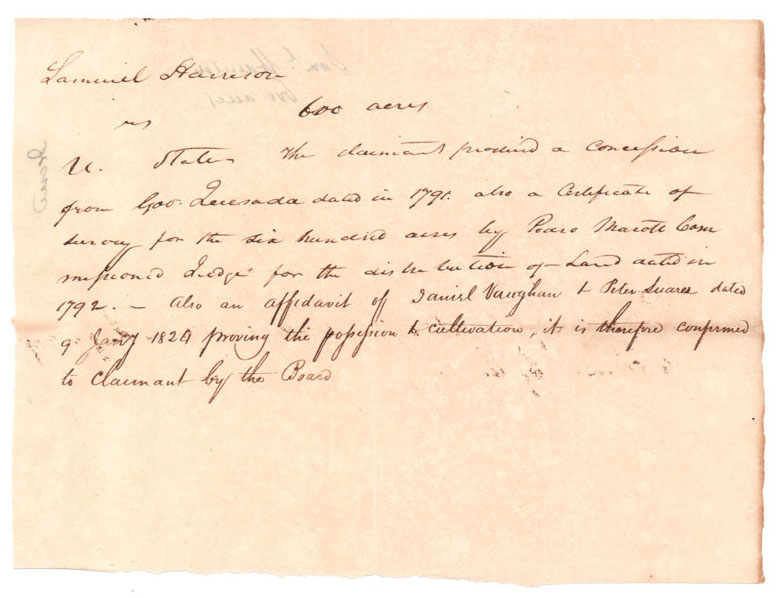 Samuel Harrison
600 acres
vs
U. States The claimant produced a concession
from Gov. Quesada dated in 1791. also a Certificate of
survey for the six hundred acres by Pedro Marott Com
missioned Judge for the distribution of Land dated in
1792. — Also an affidavit of Daniel Vaughan & Peter Suarez dated
9 Jany 1824 proving the possession & cultivation, it is therefore confirmed
to Claimant by the Board